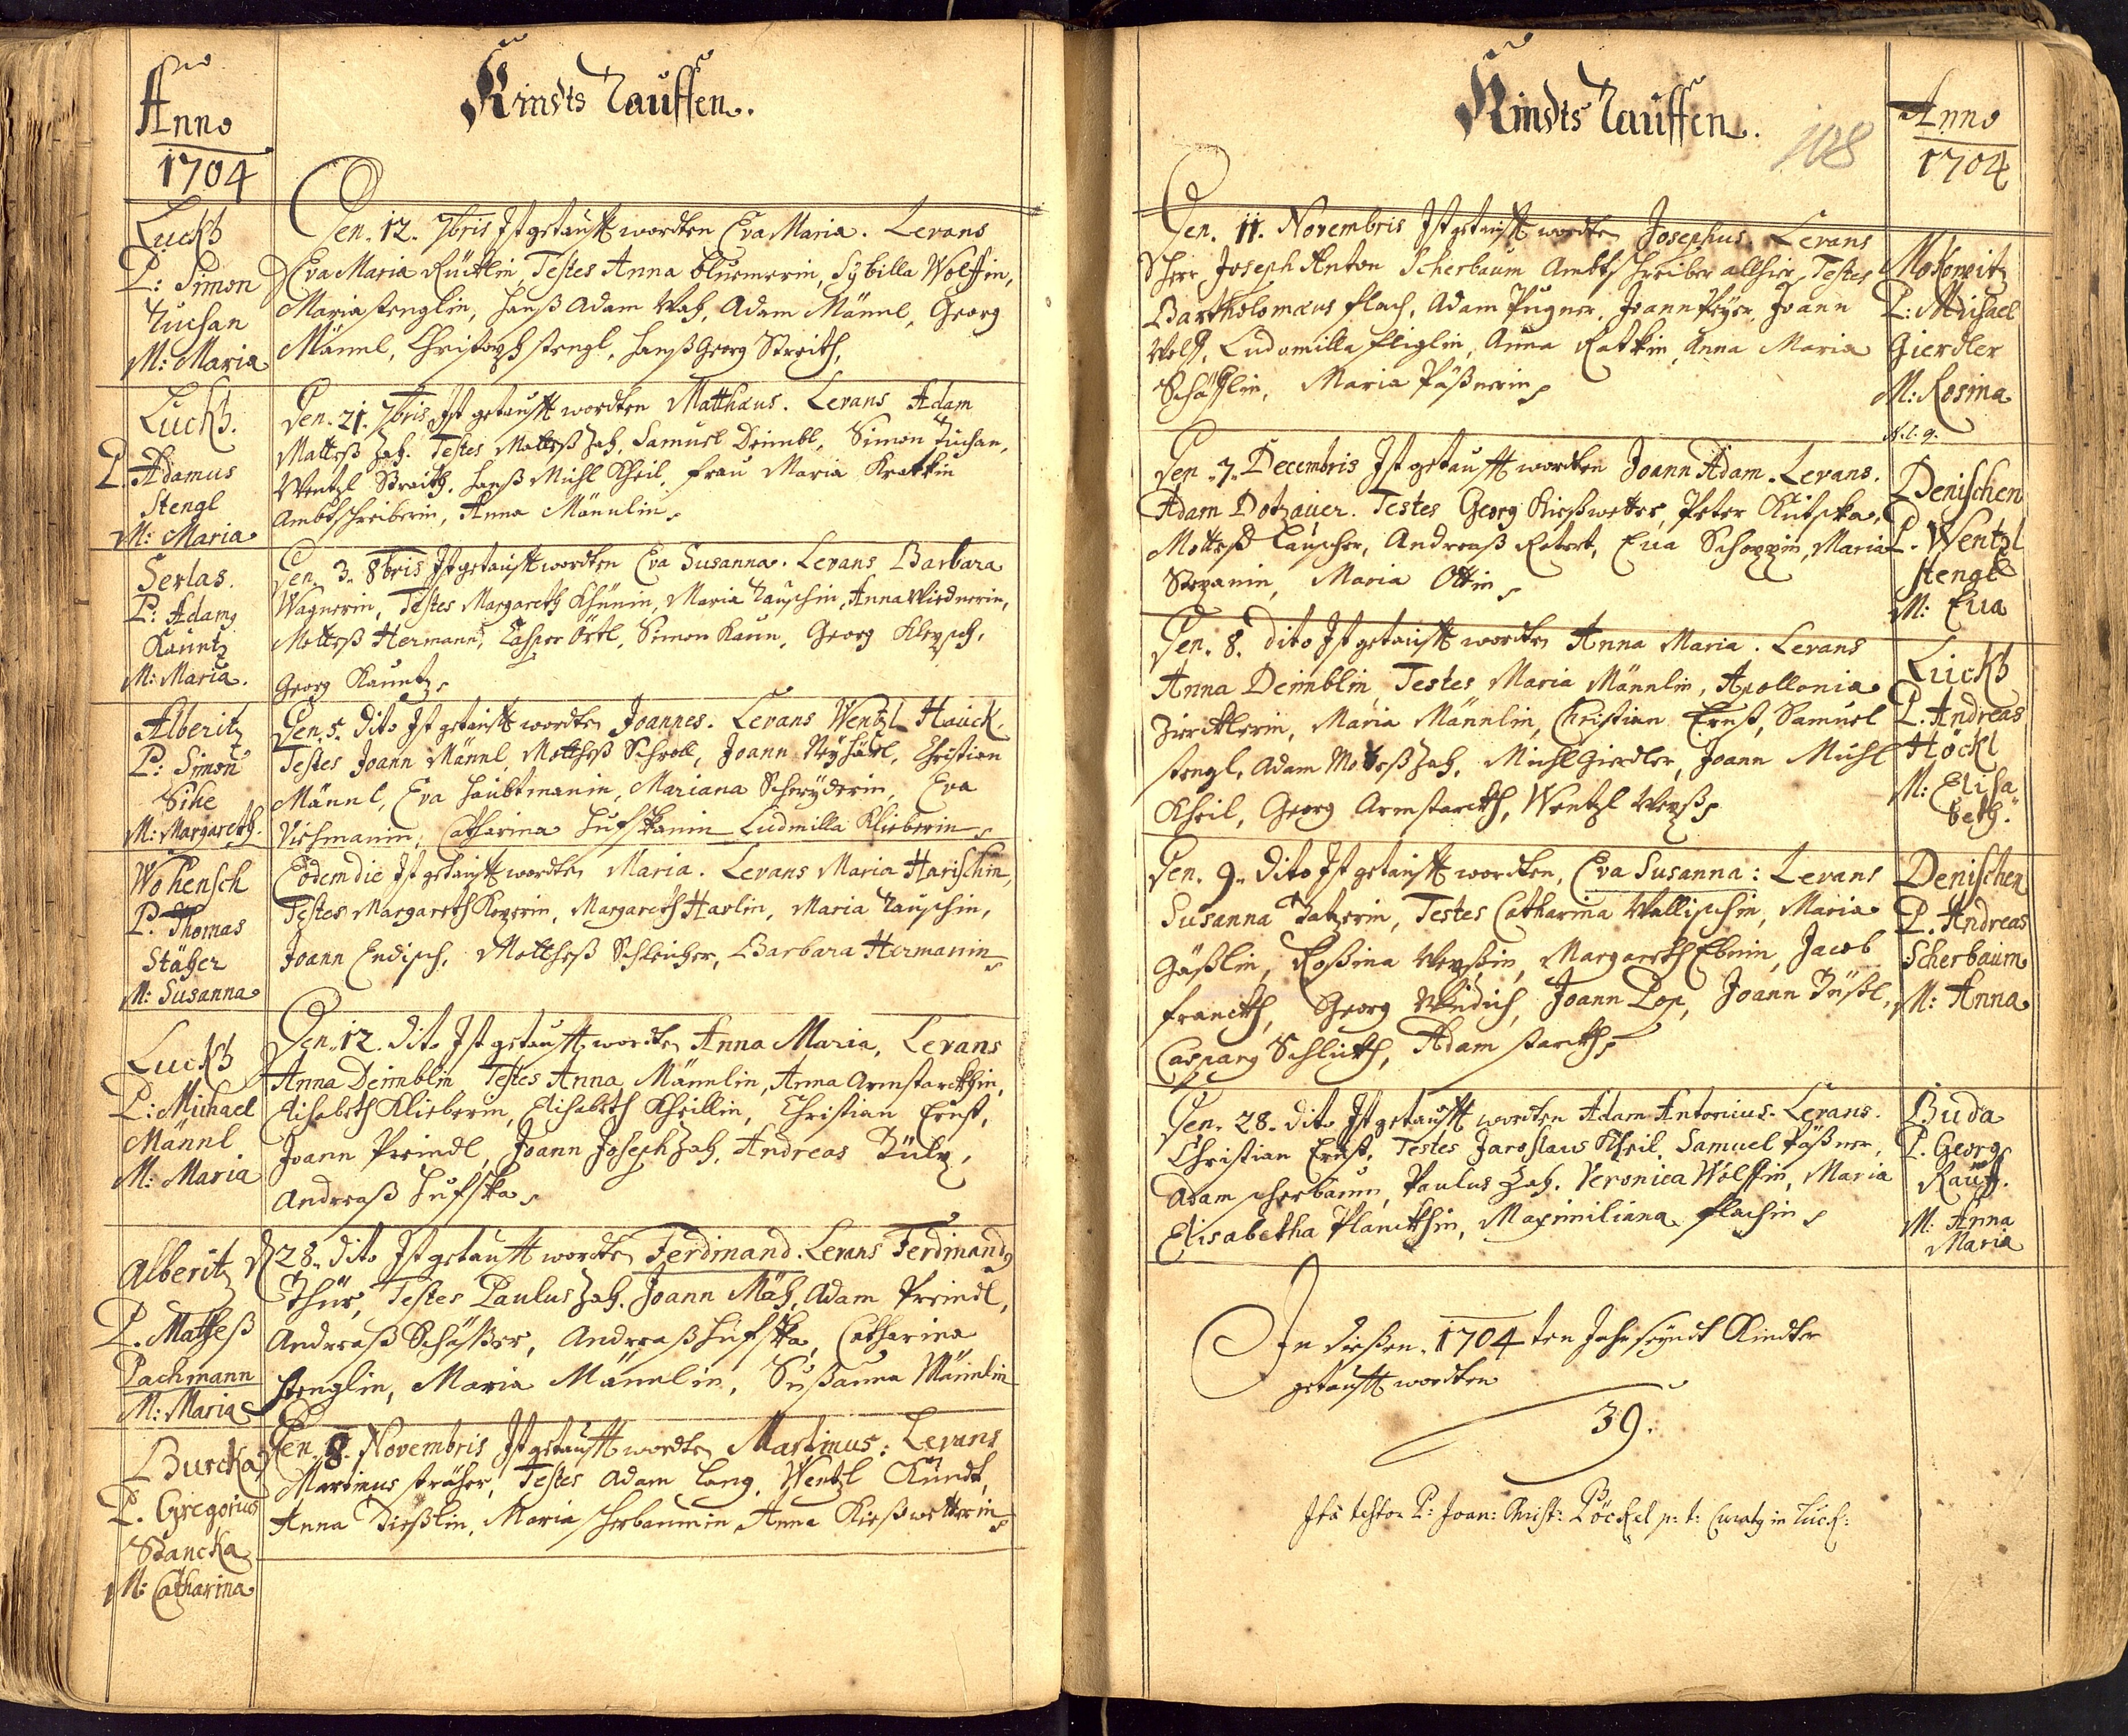 Anno
1704
Kindts Tauffen.
Luckh
P: Simon
Tuchan
M: Maria
Den. 12. 7bris Ist getaufft wordten Eva Maria. Levans
Eva Maria Testes Anna Sybilla Wolffin,
Maria Stenglin, Hanß Adam Adam Männl, Georg
Männl, Christoph Stengl, Hanß Georg Streith,
Luckh.
P. Adamus
Stengl
M: Maria
Den. 21. 7bris Ist getaufft wordten Matthæus. Levans Adam
Matteß Zah. Testes Matteß Zah, Samuel Deimbl, Simon Tuchan,
Wentzl Streith, Hanß Michl Kheil, Frau Maria
Ambtschreiberin, Anna Männlin
Serlas.
P: Adam
Kauntz
M: Maria.
Den. 3. 8bris Ist getaufft wordten Eva Susanna. Levans Barbara
Wagnerin, Testes Margareth Khünin, Maria Tauschin, Anna Widnerin,
Matteß Hermann, Casper Örtl, Simon Kaun, Georg
Georg Kauntz
Alberitz
P: Simon
Sihe
M: Margareth.
Den. 5. dito Ist getaufft wordten Joannes. Levans Wentzl Hauck.
Testes Joann Männl, Mattheß Schroll, Joann Christian
Männl, Eva Haubtmanin, Mariana Schneyderin, Eva
Viehmanin, Catharina Ludmilla Klieberin
Wohensch
P. Thomas
Stäher
M: Susanna
Eodem die Ist getaufft wordten Maria. Levans Maria Harischin,
Testes Margareth Margareth Harlin, Maria Tauschin,
Joann Endisch, Mattheß Schleicher, Barbara Hermanin
Luckh
P: Michael
Männl
M: Maria
Den. 12. dito Ist getaufft wordten Anna Maria, Levans
Anna Deimblin Testes Anna Männlin, Anna Armstarckhin,
Elisabeth Klieberin, Elisabeth Kheillin, Christian Ernst,
Joann Preindl, Joann Joseph Zah, Andreas
Andreaß Hufska
Alberitz
P. Matheß
Pachmann
M: Maria
D 28. dito Ist getaufft wordten Ferdinand. Levans Ferdinand
Thür, Testes Paulus Zah. Joann Adam Preindl,
Andreaß Andreaß Hufska, Catharina
Stenglin, Maria Männlin, Sußanna Männlin
Burcka
P. Gregorius
Stancka
M: Catharina
Den. 8. Novembris Ist getaufft wordten Martinus: Levans
Martinus Testes Adam Lang, Wentzl Kündt,
Anna Maria Scherbaumin Anna Kießwetterin
Kindts Tauffen.
108
Anno
1704
Den. 11. Novembris Ist getaufft wordten Josephus. Levans
Herr Joseph Anton Scherbaum Ambtschreiber allhier, Testes
Bartholomæus Flach, Adam Joann Joann
Wolff, Ludomilla Anna Anna Maria
Maria Päßnerin
Mokowitz
P: Michael
Gierdler
M: Rosina
Den. 7. Decembris Ist getaufft wordten Joann Adam. Levans.
Adam Dotzauer. Testes Georg Kießwetter, Peter
Matteß Tauscher, Andreaß Eva Maria
Maria Ottin
Denischen
P. Wentzl
Stengl
M: Eva
Den. 8. dito Ist getaufft wordten Anna Maria. Levans
Anna Deimblin Testes Maria Männlin, Apollonia
Maria Männlin, Christian Ernst, Samuel
Stengl, Adam Matteß Zah, Michl Gierdler, Joann Michl
Kheil, Georg Armstarckh, Wentzl Weyß
Luckh
P. Andreas
Höckl
M: Elisa
beth.
Den. 9. dito Ist getaufft wordten, Eva Susanna: Levans
Susanna Testes Catharina Wallischin, Maria
Gäßlin, Roßina Margareth Ebnin, Jacob
Franckh, Georg Joann Pop, Joann
Caspary Adam Starckh
Denischen
P. Andreas
Scherbaum
M: Anna
Den. 28. dito Ist getaufft wordten Adam Antonius. Levans.
Christian Ernst, Testes Jaroslaus Kheil, Samuel Päßner,
Adam Scherbaum, Paulus Zah. Veronica Wolffin, Maria
Elisabetha Planckhin, Maximiliana Flachin
Buda
P. Georg
Rauff.
M: Anna
Maria
In dießen. 1704 ten Jahr seyndt Kindter
getaufft wordten
39.
Ita testor P: Joan: Christ: Böckel p: t: in Luck: